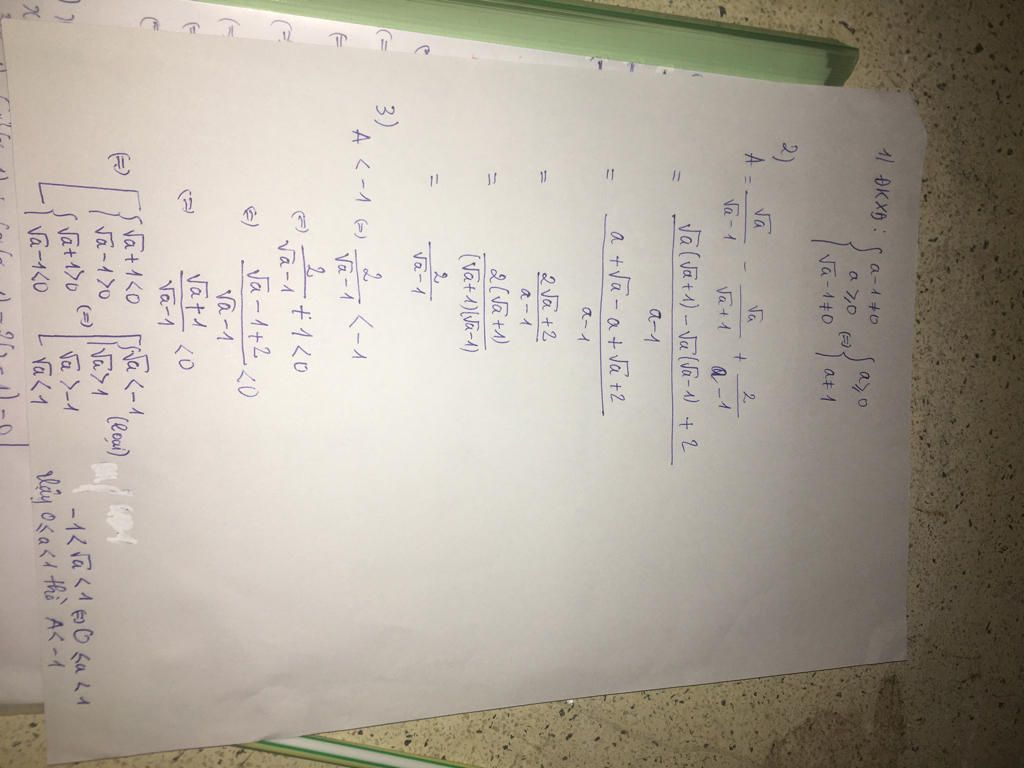 1/ ĐKXĐ: { a-1≠0
a≥0
√a-1≠0 (=) { a≥0
a≠1
2)
A = √a/(√a-1) - √a/(√a+1) + 2/(a-1)
= (√a(√a+1) - √a(√a-1) + 2)/(a-1)
= (a+√a-a+√a+2)/(a-1)
= (2√a+2)/(a-1)
= 2(√a+1)/((√a+1)(√a-1))
= 2/(√a-1)
3)
A < -1 (=) 2/(√a-1) < -1
(=) 2/(√a-1) + 1 < 0
(=) (√a-1+2)/(√a-1) < 0
(=) (√a+1)/(√a-1) < 0
(=) [ { √a+1<0
√a-1>0
{ √a+1>0
√a-1<0
(=) [ { √a<-1
√a>1 (loại)
[ √a>-1
√a<1
-1<√a<1 (=) 0≤a<1
Vậy 0≤a<1 thì A<-1